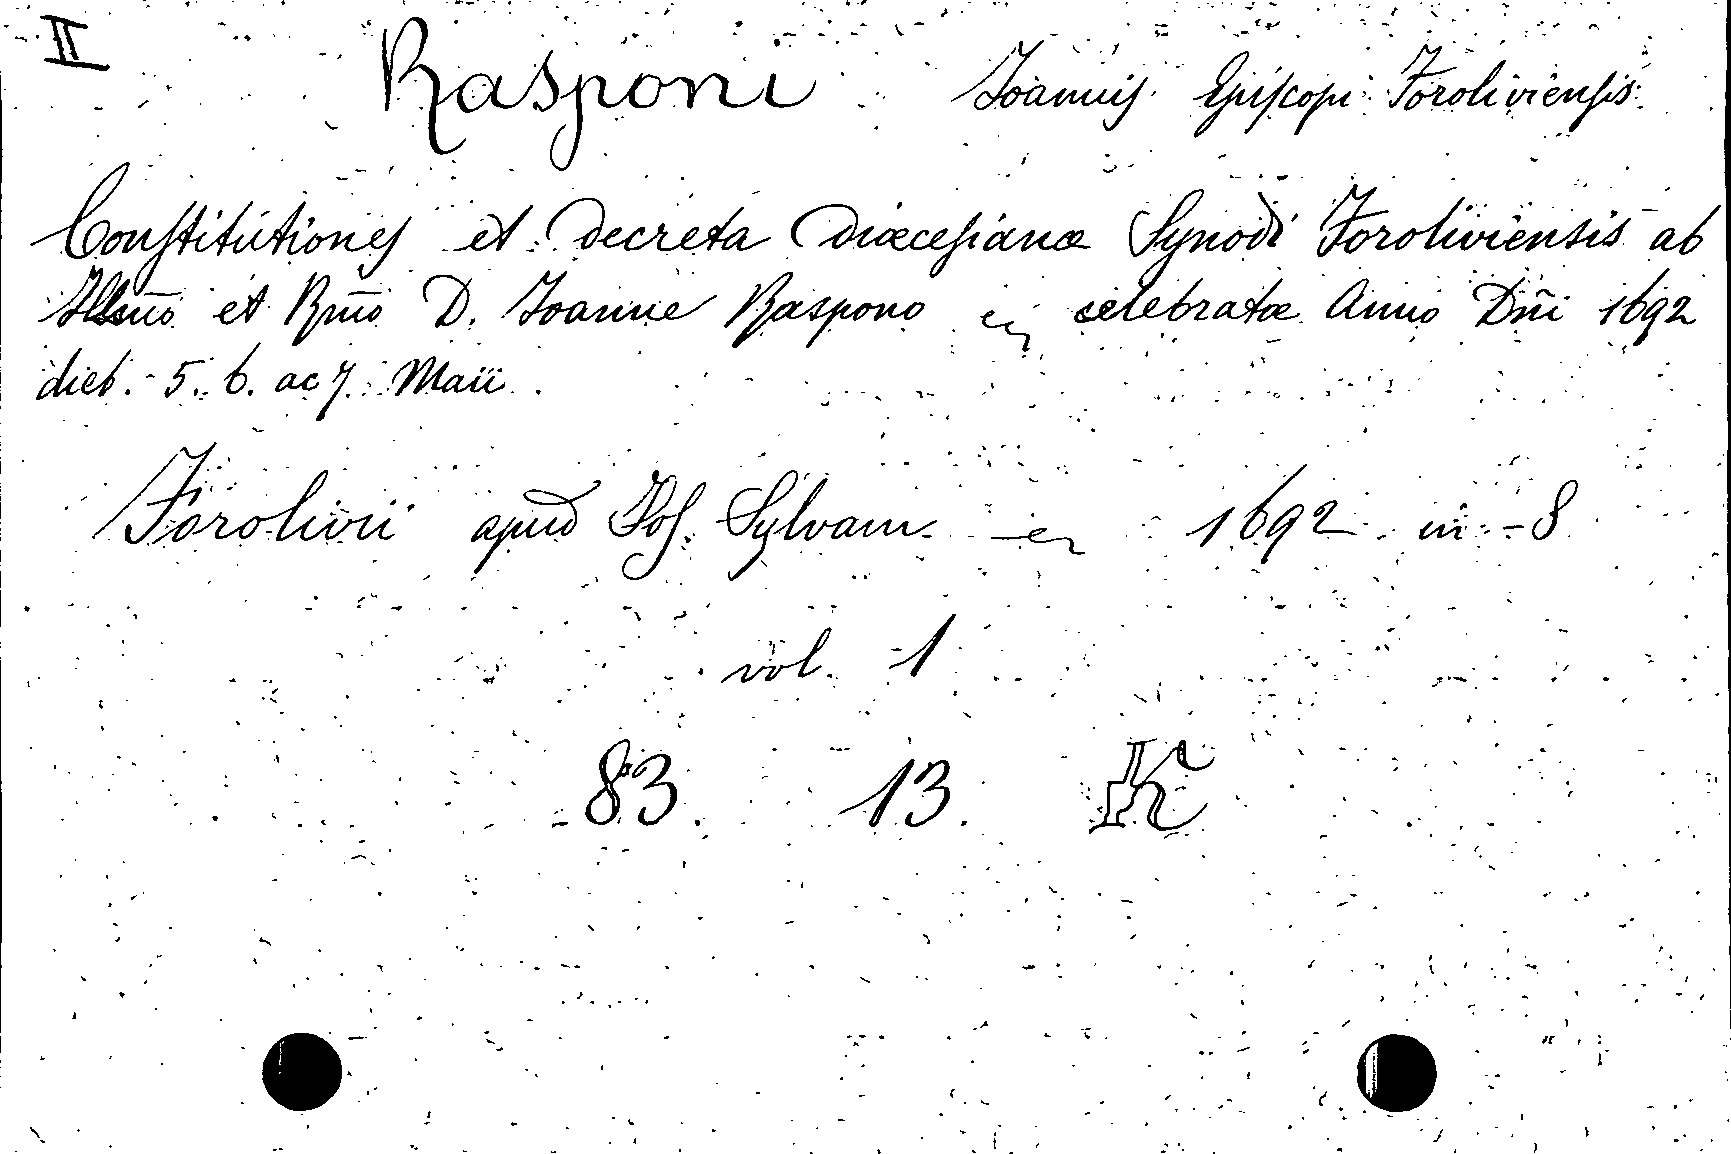 II Rasponi Joannis Episcopi Foroliviensis.
Constitutiones et Decreta Diœcesianæ Synodi Foroliviensis ab
Illm̄o et Rm̄o D. Joanne Raspono celebratæ Anno Dn̄i 1692
dieb. 5. 6. ac 7. Maii.
Forolivii apud Jos. Sylvam 1692 in-8
vol. 1
83. 13. K